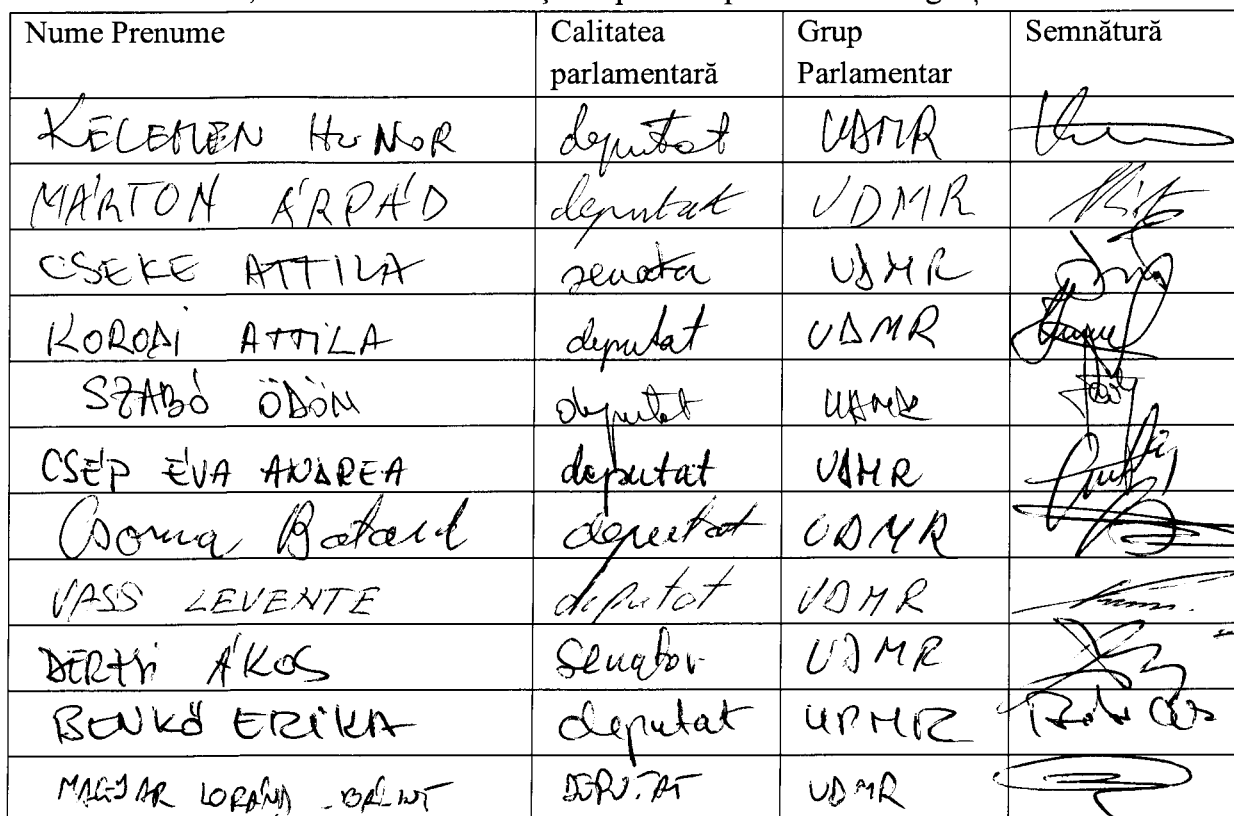 Nume Prenume Calitatea parlamentară Grup Parlamentar Semnătură
KELEMEN HUNOR deputat UDMR
MÁRTON ÁRPÁD deputat UDMR
CSEKE ATTILA senator UDMR
KORODI ATTILA deputat UDMR
SZABÓ ÖDÖN deputat UDMR
CSÉP ÉVA ANDREA deputat UDMR
Csoma Botond deputat UDMR
VASS LEVENTE deputat UDMR
DERZSI ÁKOS Senator UDMR
BENKŐ ERIKA deputat UDMR
MAGYAR LORÁND - BÁLINT DEPUTAT UDMR